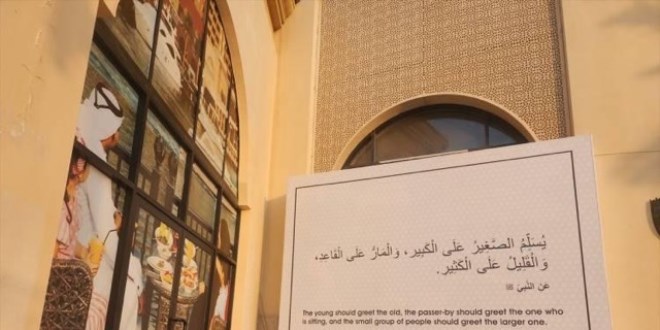 يُسَلِّمُ الصَّغِيرُ عَلَى الْكَبِيرِ، وَالْمَارُّ عَلَى الْقَاعِدِ،
وَالْقَلِيلُ عَلَى الْكَثِيرِ.
عَنِ النَّبِيِّ ﷺ
The young should greet the old, the passer-by should greet the one who
is sitting, and the small group of people should greet the larger one.